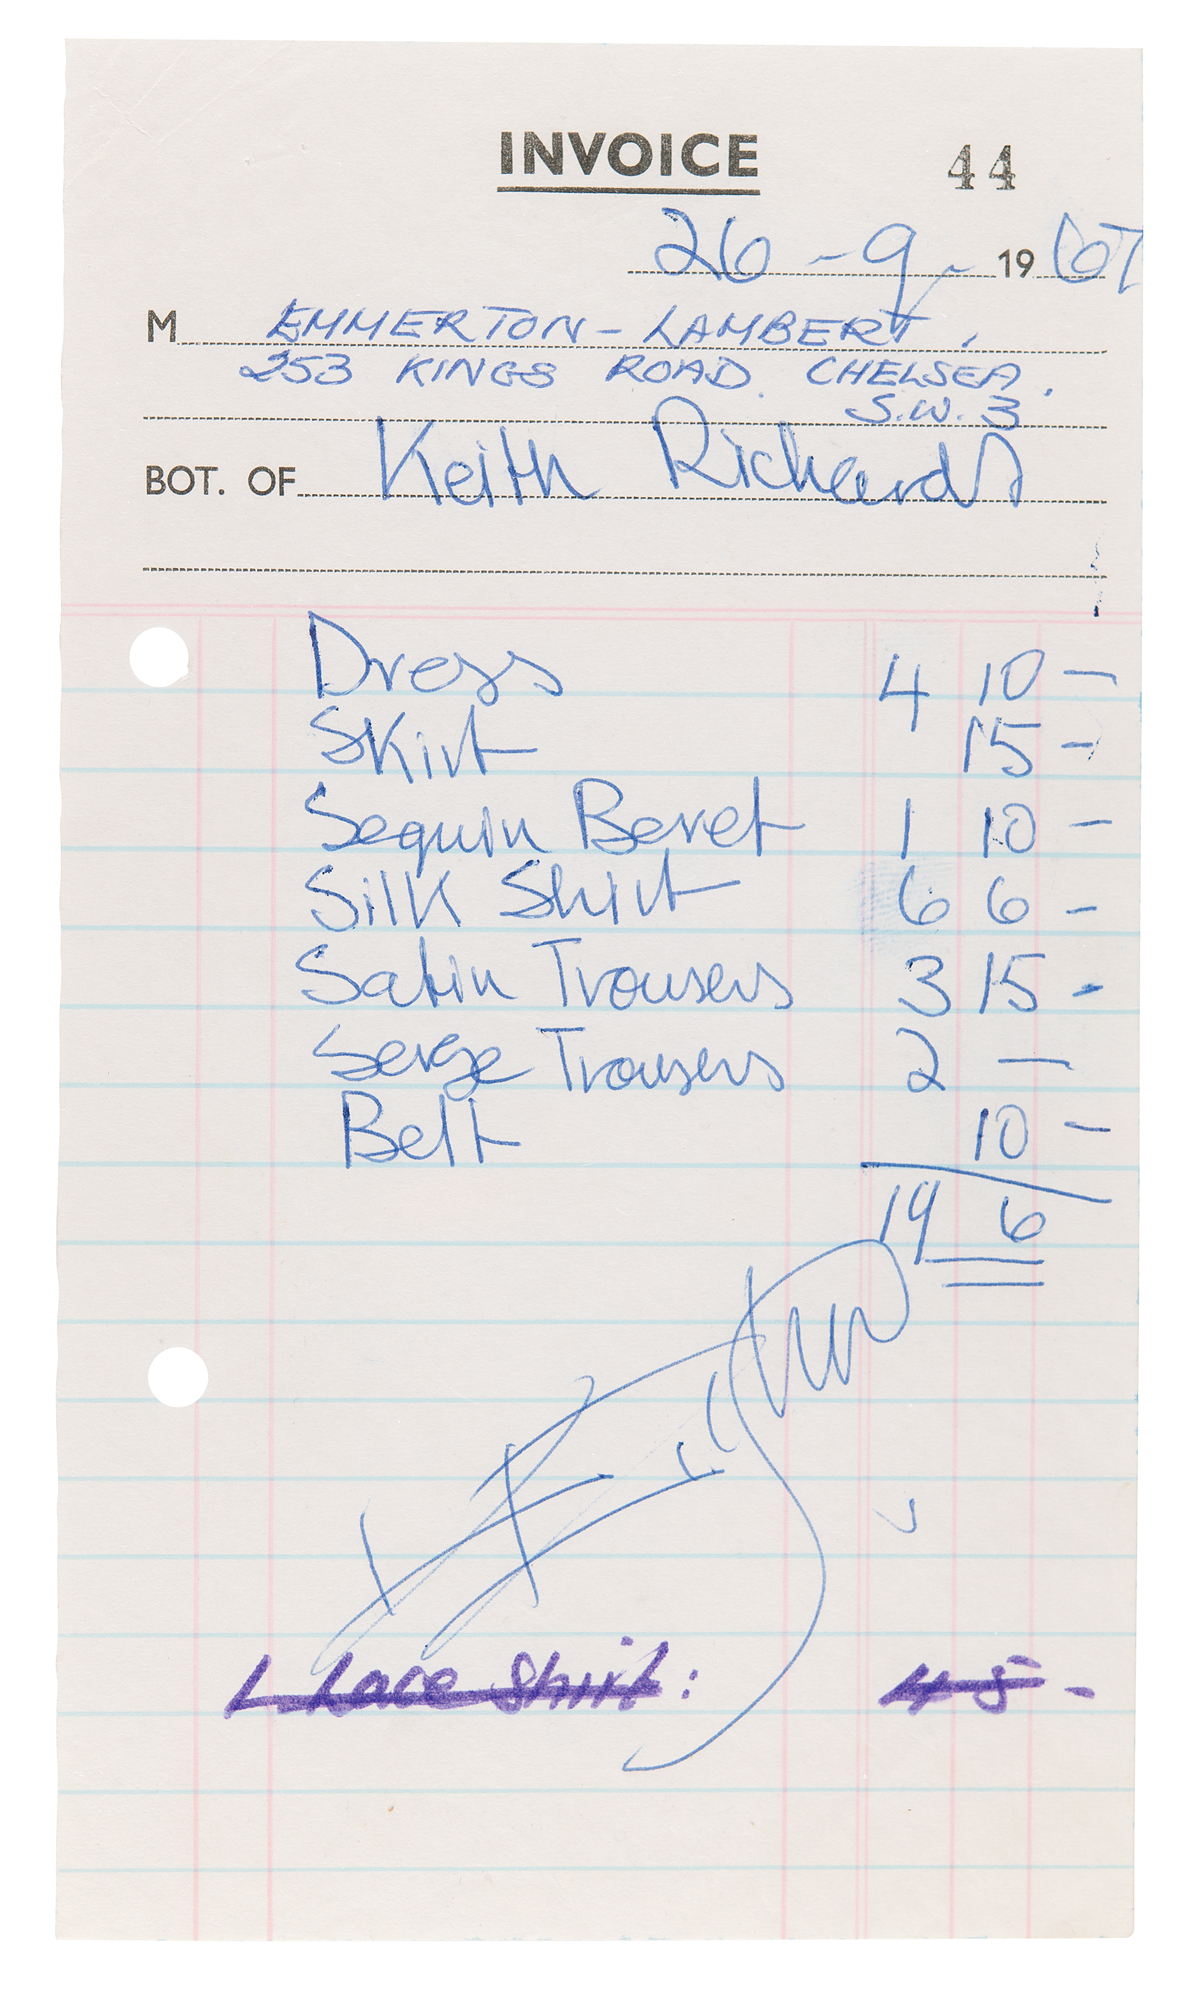 INVOICE 44
26 - 9 - 19 67
M EMMERTON - LAMBERT,
253 KINGS ROAD. CHELSEA.
S.W. 3
BOT. OF Keith Richards
Dress 4 10 —
Skirt 15 —
Sequin Beret 1 10 —
Silk Shirt 6 6 —
Satin Trousers 3 15 -
Serge Trousers 2 —
Belt 10 —
19 6
1 Lace Shirt: 4 5 -